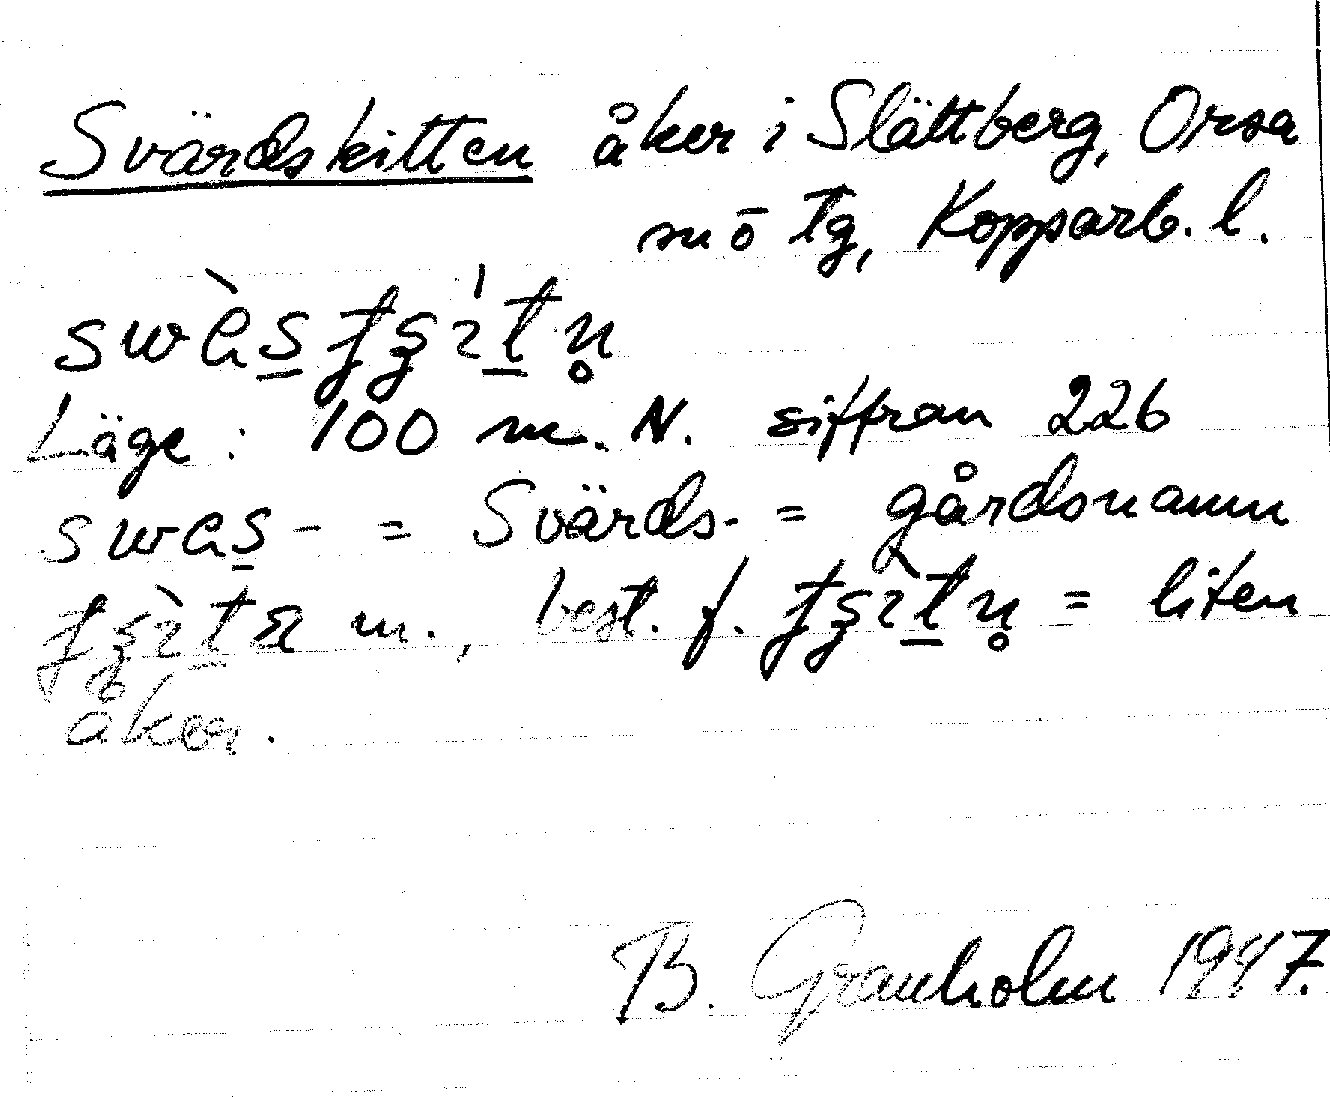 Svärdskitten åker i Slättberg, Orsa
sn ö tg, Kopparb. l.
Läge: 100 m. N. siffran 226
= Svärds- = gårdsnamn
m., best. f. = liten
åker.
B. Granholm 1947.